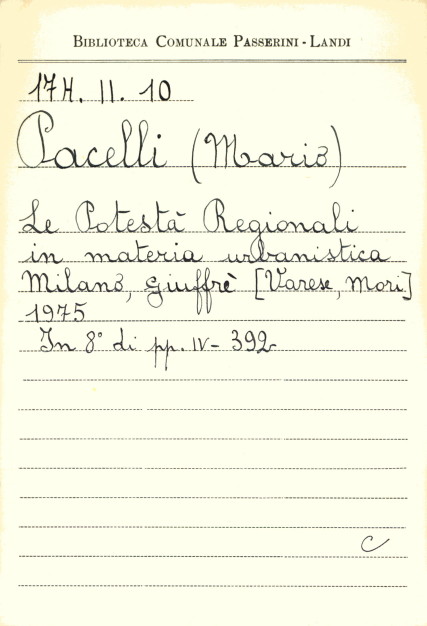 BIBLIOTECA COMUNALE PASSERINI - LANDI
17H. II. 10
Pacelli (Mario)
Le Potestà Regionali
in materia urbanistica
Milano, Giuffrè [Varese, Mori]
1975
In 8° di pp. IV - 392
C